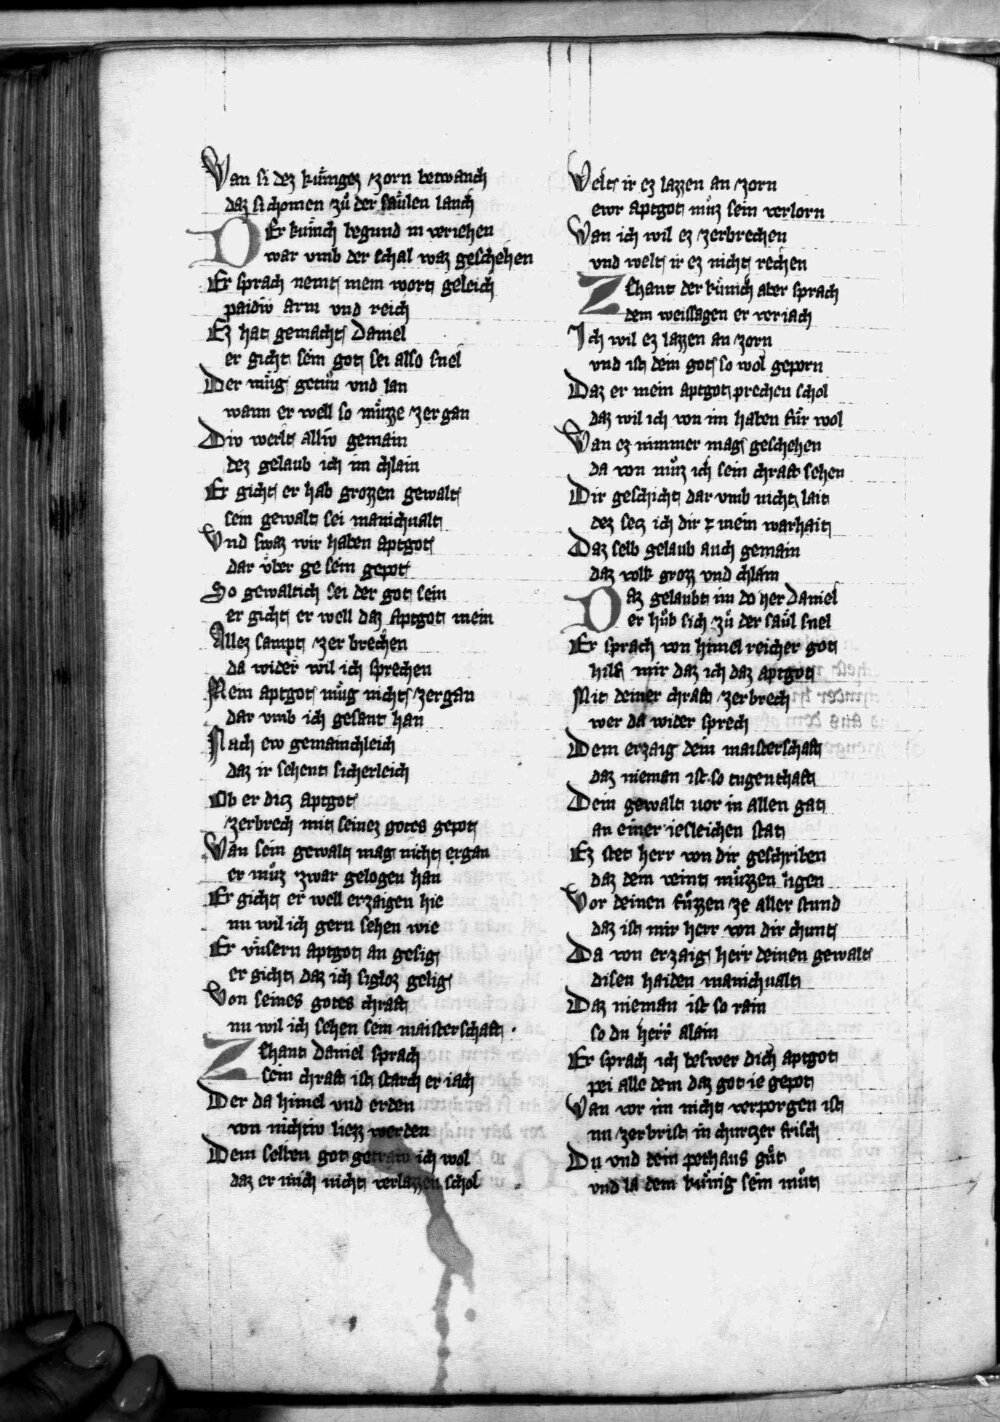 Wan si dez kůniges zorn betwanch
daz si chomen zů der saůlen lanch
Der kůnich begund in veriehen
war vmb der schal waz geschehen
Er sprach nemt mein wort geleich
paidiv arm vnd reich
Ez hat gemacht Daniel
er gicht sein got sei also snel
Der můg getůn vnd lan
wann er well so můzze zergan
Div werlt alliv gemain
dez gelaub ich im chlain
Er gicht er hab grozzen gewalt
sein gewalt sei manichualt
Vnd swaz wir haben aptgot
dar vͤber ge sein gepot
So gewaltich sei der got sein
er gicht er well daz aptgot mein
Allez sampt zerbrechen
da wider wil ich sprechen
Mein aptgot můg nicht zergan
dar vmb ich gesant han
Nach ew gemainchleich
daz ir sehent sicherleich
Ob er ditz aptgot
zerbrech mit seinez gotes gepot
Wan sein gewalt mag nicht ergan
er můz zwar gelogen han
Er gicht er well erzaigen hie
nu wil ich gern sehen wie
Er vnsern aptgot an gesig
er gicht daz ich sigloz gelig
Von seines gotes chraft
nu wil ich sehen sein maisterschaft
Zehant Daniel sprach
sein chraft ist starch er iach
Der da himel vnd erden
von nichtiv liezz werden
Dem selben got getraw ich wol
daz er mich nicht verlazzen schol
Welt ir ez lazzen an zorn
ewr aptgot můz sein verlorn
Wan ich wil ez zerbrechen
vnd welt ir ez nicht rechen
Zehant der kůnich aber sprach
dem weissagen er veriach
Ich wil ez lazzen an zorn
vnd ist dein got so wol geporn
Daz er mein aptgot prechen schol
daz wil ich von im haben fůr wol
Wan ez nimmer mag geschehen
da von můz ich sein chraft sehen
Dir geschicht dar vmb nicht lait
dez setz ich dir z mein warhait
Daz selb gelaub auch gemain
daz volk grozz vnd chlain
Daz gelaubt im do her Daniel
er hůb sich zů der saůl snel
Er sprach von himel reicher got
hilf mir daz ich daz aptgot
Mit deiner chraft zerbrech
wer da wider sprech
Dem erzaig dein maisterschaft
daz nieman ist so tugenthaft
Dein gewalt vor in allen gat
an einer iesleichen stat
Ez stet herr von dir geschriben
daz dein veint můzzen ligen
Vor deinen fůzzen ze aller stund
daz ist mir herr von dir chunt
Da von erzaig herr deinen gewalt
disen haiden manichualt
Daz nieman ist so rain
so du herr alain
Er sprach ich beswer dich aptgot
pei alle dem daz got ie gepot
Wan vor im nicht verporgen ist
nu zerbrist in churtzer frist
Du vnd dein pethaus gůt
vnd la dem kůnig sein můt